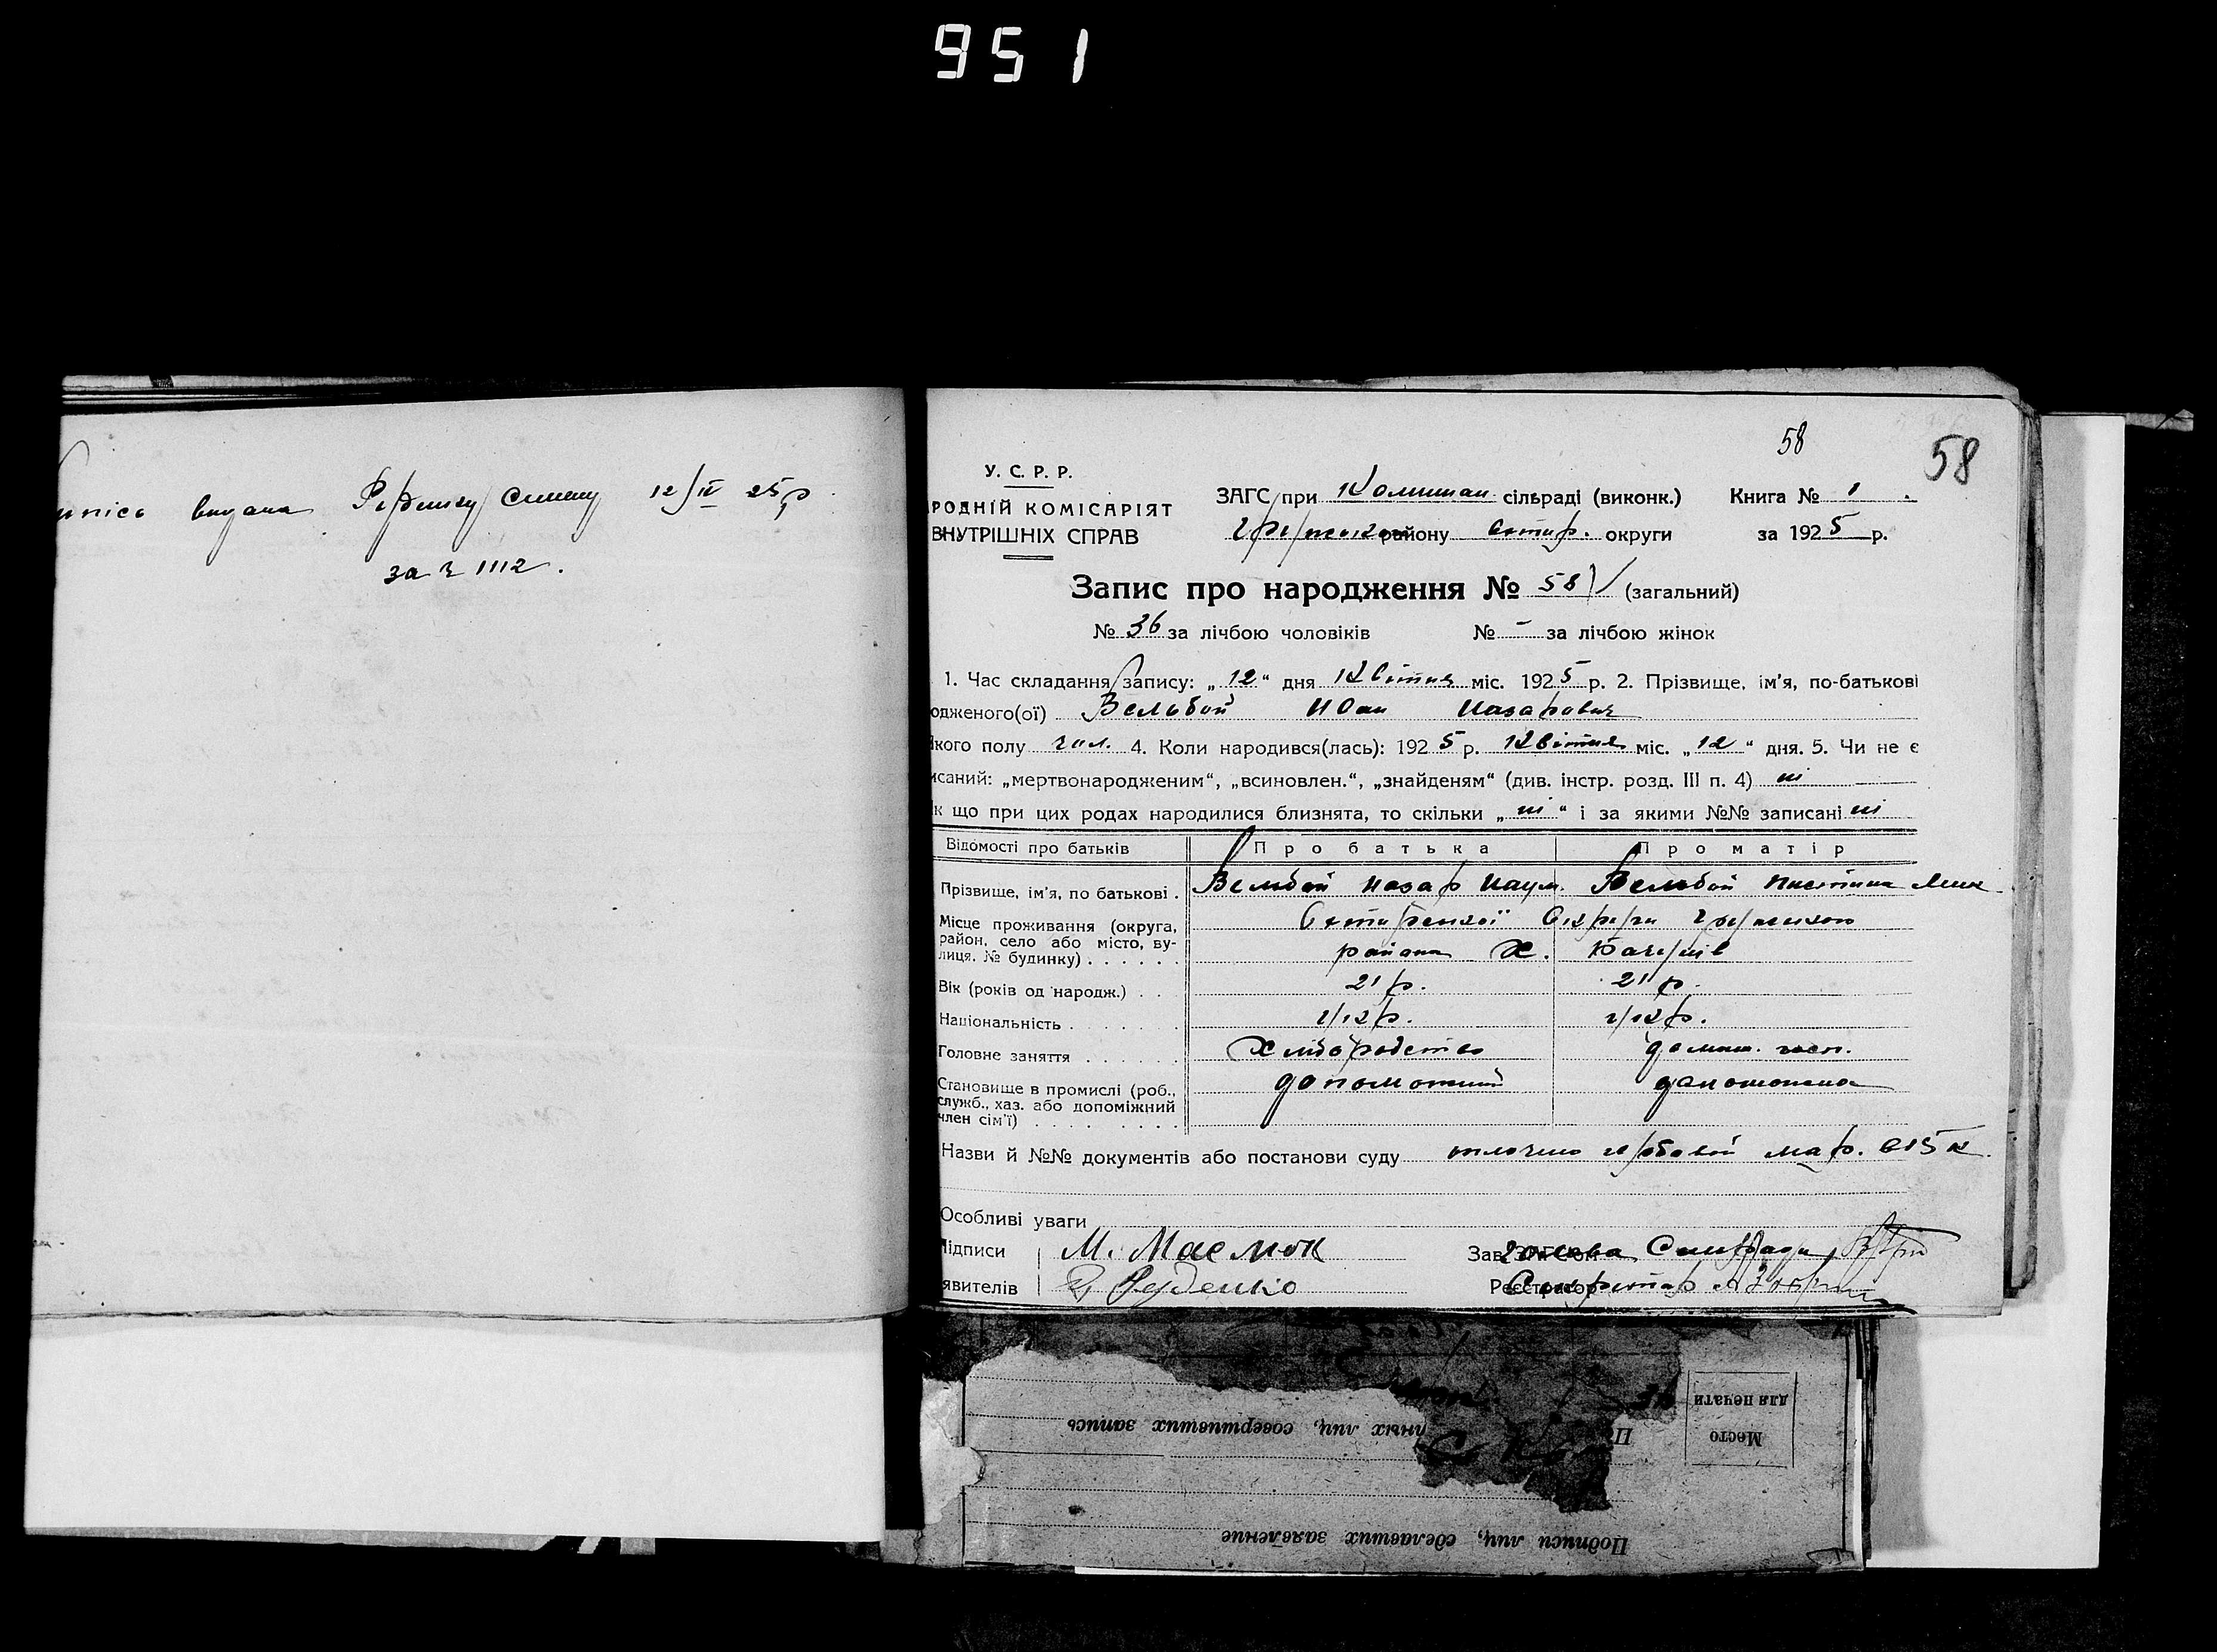 951
видана 12/IV 25 р
за № 1112.
58
58
У. С. Р. Р.
РОДНІЙ КОМІСАРІЯТ
ВНУТРІШНІХ СПРАВ
ЗАГС при Комишан. сільраді (виконк.) Книга № 1
району Охтир. округи за 1925 р.
Запис про народження № 58 (загальний)
№ 36 за лічбою чоловіків № - за лічбою жінок
1. Час складання запису: „12“ дня Квітня міс. 1925 р. 2. Прізвище, ім’я, по-батькові
одженого(ої) Вельбой Йван Назарович
кого полу чол. 4. Коли народився(лась): 1925 р. Квітня міс. „12“ дня. 5. Чи не є
исаний: „мертвонародженим“, „всиновлен.“, „знайденям“ (див. інстр. розд. III п. 4) ні
к що при цих родах народилися близнята, то скільки „ні“ і за якими №№ записані ні
Відомості про батьків Про батька Про матір
Прізвище, ім’я, по батькові . Вельбой Назар Наум. Вельбой
Місце проживання (округа, район, село або місто, вулиця, № будинку) . . . . . . Охтирської Округи
района Х.
Вік (років од народж.) . . 21 р. 21 р.
Національність . . . . . . . Укр. Укр.
Головне заняття . . . . . . Хліборобство домаш. госп.
Становище в промислі (роб., служб., хаз. або допоміжний член сім’ї) . . . . . . . . . допоможний допоможна
Назви й №№ документів або постанови суду оплочено гербовой мар. 15 к.
Особливі уваги
ідписи М. Маємок Зав. ЗАГС’ом Голова Сільради
явителів Руденко Реєстратор Секретар
Место для печати
нных лиц, совершивших запись
Подписи лиц, сделавших заявление